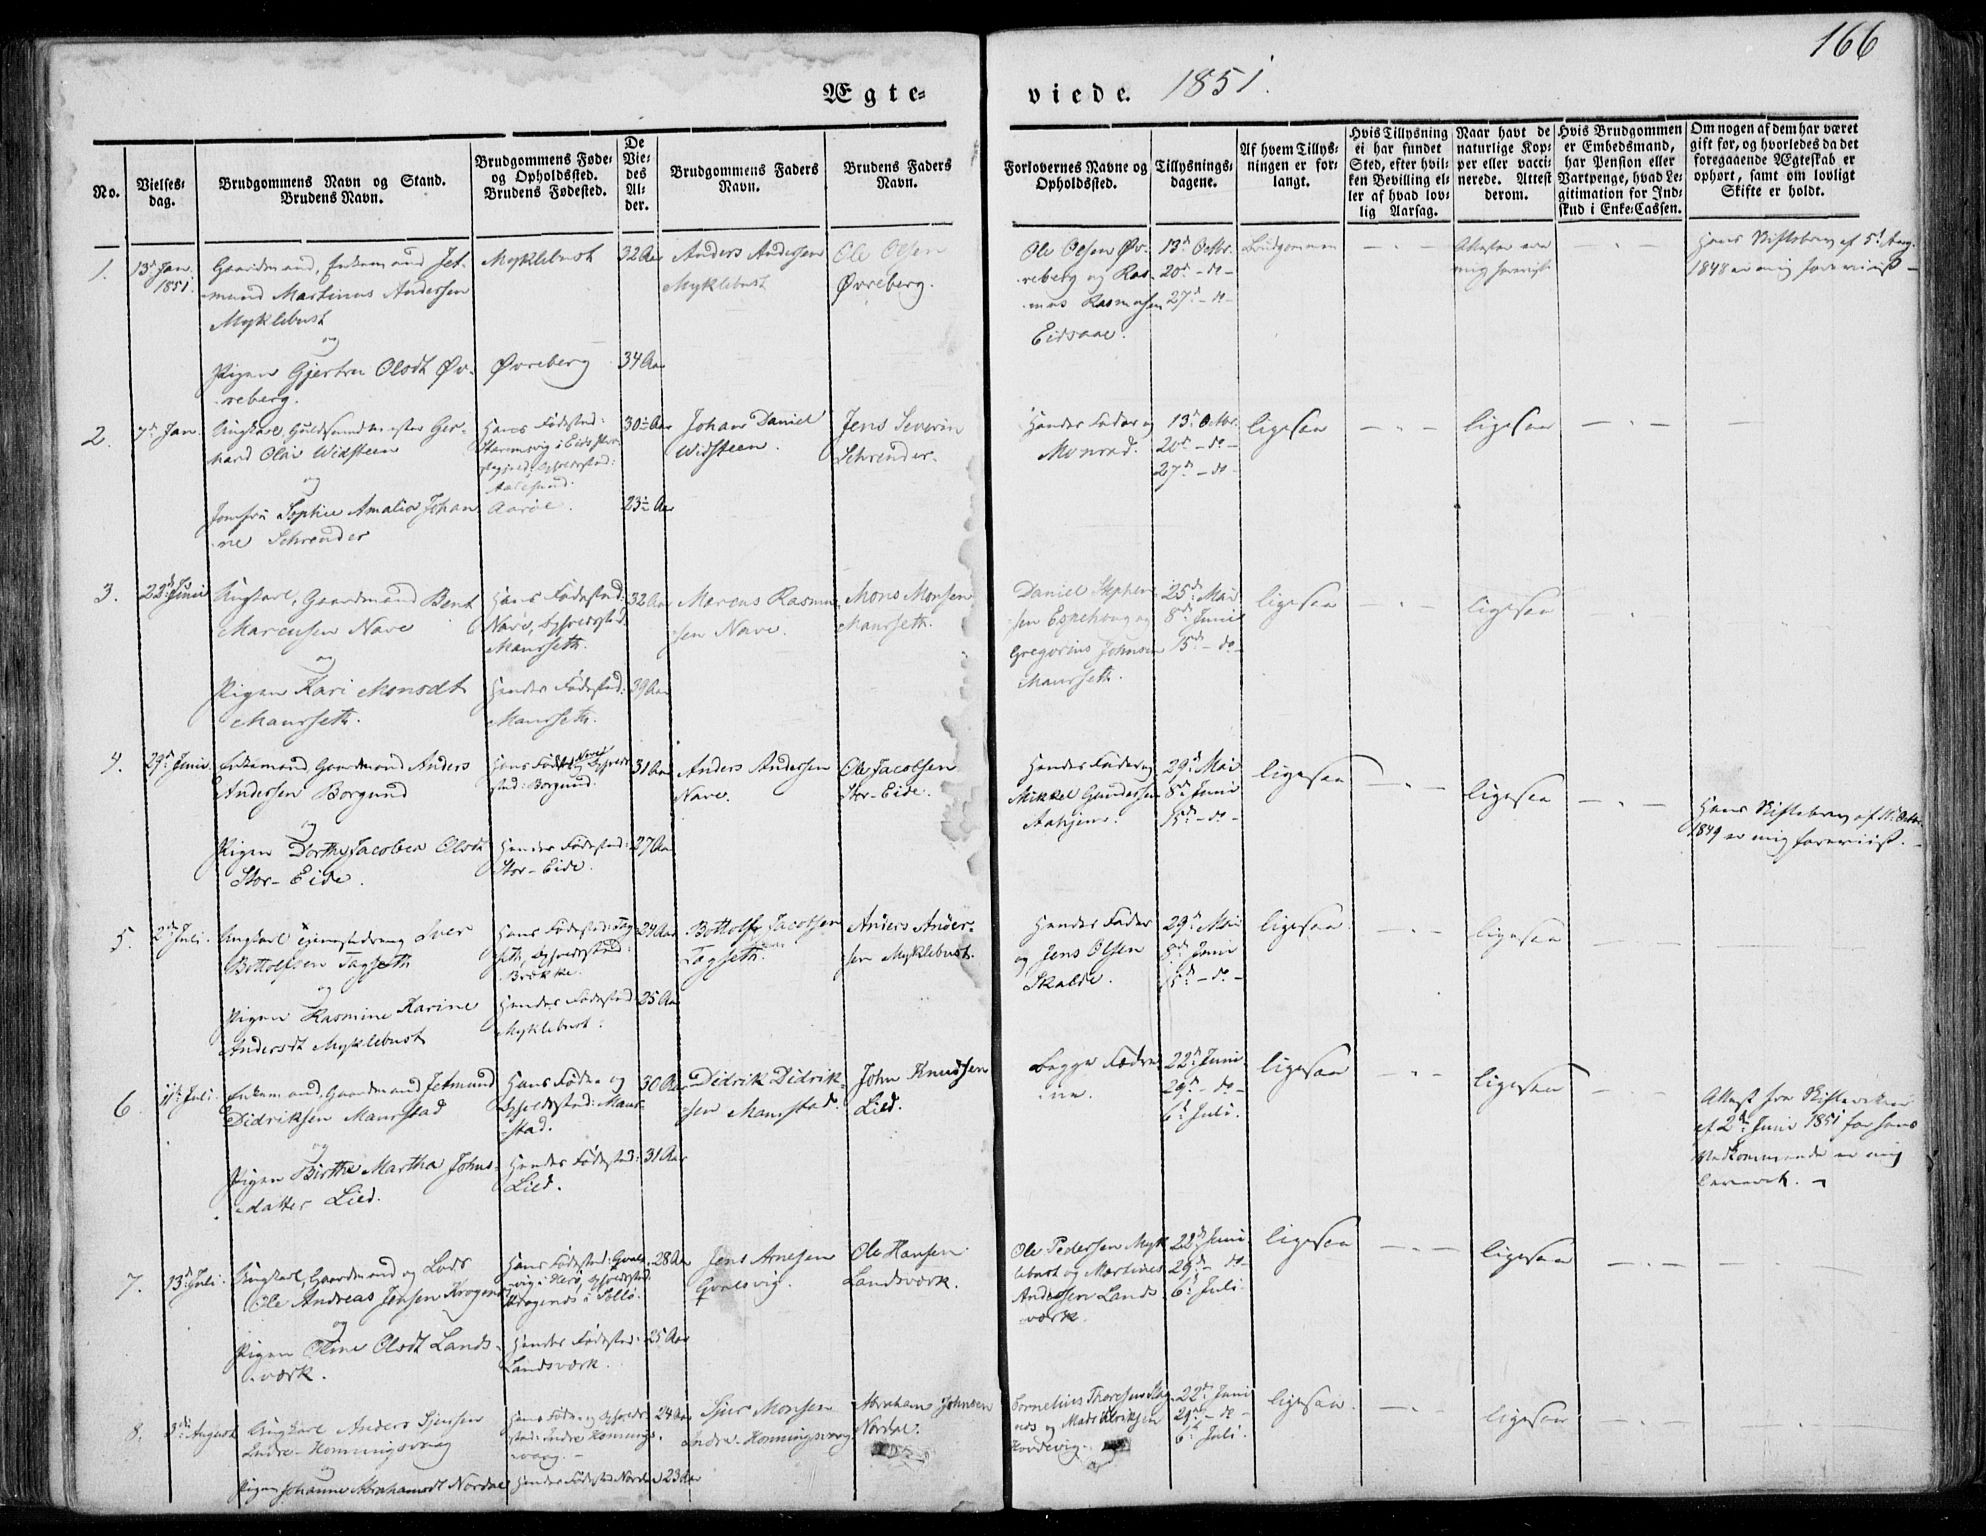 166
Ægte-
viede. 1851.
No.
Vielses-
dag.
Brudgommens Navn og Stand.
Brudens Navn.
Brudgommens Føde-
og Opholdssted.
Brudens Fødested.
De
Vie-
des
Al-
der.
Brudgommens Faders
Navn.
Brudens Faders
Navn.
Forlovernes Navne og
Opholdssted.
Tillysnings-
dagene.
Af hvem Tillys-
ningen er for-
langt.
Hvis Tillysning
ei har fundet
Sted, efter hvil-
ken Bevilling el-
ler af hvad lov-
lig Aarsag.
Naar havt de
naturlige Kop-
per eller vacci-
nerede. Attest
derom.
Hvis Brudgommen
er Embedsmand,
har Pension eller
Vartpenge, hvad Le-
gitimation for Ind-
skud i Enke-Cassen.
Om nogen af dem har været
gift før, og hvorledes da det
foregaaende Ægteskab er
ophørt, samt om lovligt
Skifte er holdt.
1.
13d Jan.
1851.
Gaardmand, Enkemand Jet-
mund Martinus Andersen
Myklebust
og
Pigen Gjertru Olsdt Øv-
reberg.
Myklebust
Øvreberg
32 Aar
34 Aar
Anders Andersen
Myklebust
Ole Olsen
Øvreberg.
Ole Olsen Øv-
reberg og Ras-
mus Rasmusen
Eidsaae.
13d Octbr.
20d - do -
27d - do -
Brudgommen
- " -
Attester ere
mig foreviist
- " -
Hans Skiftebrev af 5d Aug.
1848 er mig foreviist -
2.
7d Jan.
Ungkarl, Guldsmedmester Ger-
hard Olai Widsteen
og
Jomfru Sophie Amalia Johan
ne Schrøder
Hans Fødested:
i Eids Præ-
stegjeld, Opholdssted:
Aalesund.
Aarøe.
30 Aar
23 Aar
Johan Daniel
Widsteen.
Jens Severin
Schrøder.
Hendes Fader og
Monrad.
13d Octbr.
20d - do -
27d - do -
ligesaa
- " -
ligesaa
- " -
-
3.
22d Junii
Ungkarl, Gaardmand Bent
Marcusen Nave
og
Pigen Kari Monsdt
Maurseth.
Hans Fødested:
Nave, Opholdssted
Maurseth.
Hendes Fødested:
Maurseth.
32 Aar
39 Aar
Marcus Rasmu-
sen Nave.
Mons Monsen
Maurseth.
Daniel Stephen-
sen Espehoug og
Gregorius Johnsen
Maurseth.
25d Mai
8d Junii
15d - do -
ligesaa
- " -
ligesaa
- " -
4.
29d Junii.
Enkemand, Gaardmand Anders
Andersen Borgund
og
Pigen Dorthe Jacobea Olsdt
Stor-Eide.
Hans Fødested Nave, Opholds-
sted: Borgund.
Hendes Fødested:
Stor-Eide.
31 Aar
27 Aar
Anders Andersen
Nave.
Ole Jacobsen
Stor-Eide.
Hendes Fader og
Mikkel Gundersen
Aahjem.
29d Mai
8d Junii
15d - do -
ligesaa
- " -
ligesaa
- " -
Hans Skiftebrev af 11d Octbr.
1849 er mig foreviist.
5.
2d Juli.
Ungkarl Iver
Bottolfsen Tagseth
og
Pigen Rasmine Karine
Andersdt Myklebust
Hans Fødested: Tag-
seth, Opholdssted:
Brække.
Hendes Fødested
Myklebust.
24 Aar
25 Aar
Bottolf Jacobsen
Tagseth.
Anders Ander-
sen Myklebust.
Hendes Fader
og Jens Olsen
Skalde.
29d Mai
8d Junii
15d - do -
ligesaa
- " -
ligesaa
6.
11d Juli.
Enkemand, Gaardmand Jetmund
Didriksen Maurstad
og
Pigen Birthe Martha Johns-
datter Lied.
Hans Føde- og
Opholdssted: Maur-
stad.
Hendes Fødested:
Lied.
30 Aar
31 Aar
Didrik Didrik-
sen Maurstad.
John Knudsen
Lied.
Begge Fædre-
ne.
22d Junii
29d - do -
6d Juli.
ligesaa
- " -
ligesaa
- " -
Attest fra Skifteretten
af 2d Junii 1851 for hans
Vedkommende er mig
leveret. -
7.
13d Juli.
Ungkarl, Gaardmand og Lods
Ole Andreas Jensen Kragenes
og
Pigen Oline Olsdt Lands-
værk.
Hans Fødested: Gvals-
vig i Herø, Opholdssted
Kragenes i Sellø.
Hendes Fødested:
Landsværk.
28 Aar
25 Aar
Jens Arnesen
Gvalsvig.
Ole Hansen
Landsværk.
Ole Pedersen Myk
lebust og Martinus
Andersen Lands
værk.
22d Junii
29d - do -
6d Juli.
ligesaa
- " -
ligesaa
- " -
-
8.
3d August
Ungkarl Anders Sjursen
Indre-Honningsvaag
og
Pigen Johanne Abrahamsdt Nordal
Hans Føde- og Opholds-
sted: Indre Honnings-
vaag. -
Hendes Fødested Nordal
24 Aar
23 Aar
Sjur Monsen
Indre-Honningsvaag
Abraham Johnsen
Nordal.
Cornelius Thoresen Rag-
næs og Mads Olriksen
Hovdevig.
22d Junii
29d - do -
6d Juli.
ligesaa
- " -
ligesaa
- " -